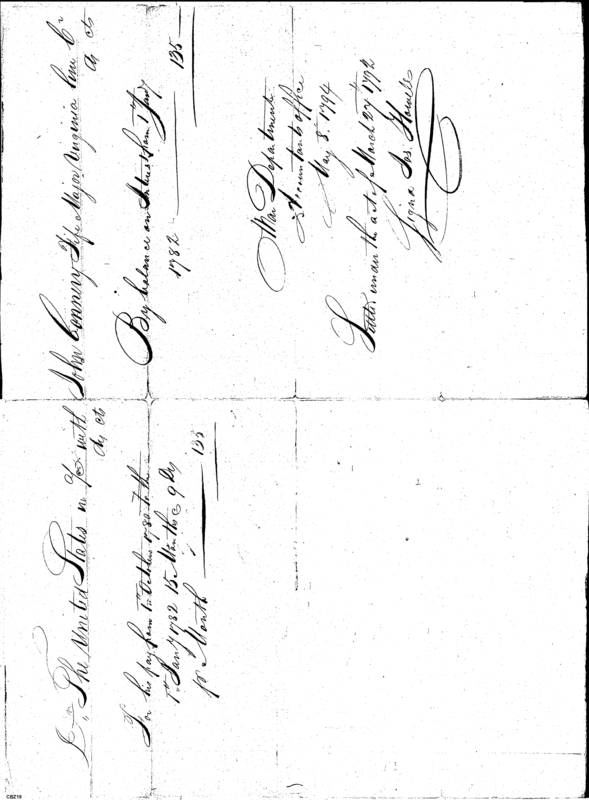 Dr. The United States in a/c with
Ds Cts
John Connery Fife Major Virginia line Cr
Ds Cts
For his pay from 1st October 1780 to the
1st Jany 1782 15 Months @ 9 Ds
pr Month 135
By balance on Interest from 1st Jany
1782 135
War Department
Accountants office
May 8th 1794
Settled under the act of March 27th 1792
Signd Jos. Howell
CBZ19